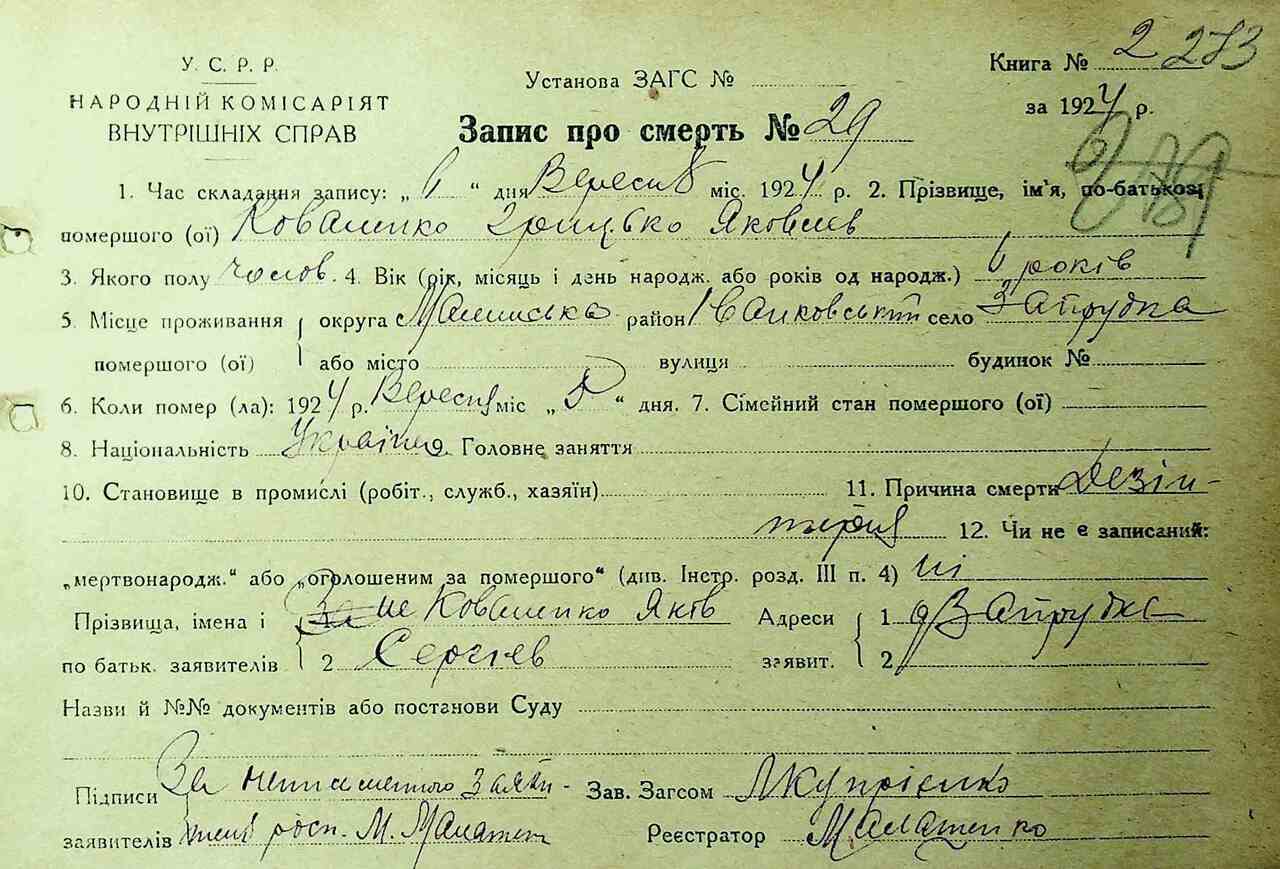 У. С. Р. Р.
НАРОДНІЙ КОМІСАРІЯТ
ВНУТРІШНІХ СПРАВ
Установа ЗАГС №
Книга № 2 273
за 1924 р.
Запис про смерть № 29
1. Час складання запису: „ 6 “ дня Вересня міс. 1924 р. 2. Прізвище, ім'я, по-батькові
помершого (ої) Коваленко Грицько Яковлев
3. Якого полу чолов. 4. Вік (рік, місяць і день народж. або років од народж.) 6 років
5. Місце проживання округа Малинська район Іванковський село Запрудка
помершого (ої) або місто вулиця будинок №
6. Коли помер (ла): 1924 р. Вересня міс „ 5 “ дня. 7. Сімейний стан помершого (ої)
8. Національність Українц 9. Головне заняття
10. Становище в промислі (робіт., служб., хазяїн) 11. Причина смерти Дезін-
терія 12. Чи не є записаний:
„мертвонародж.“ або „оголошеним за помершого“ (див. Інстр. розд. III п. 4) ні
Прізвища, імена і 1 Коваленко Яків Адреси 1 Запрудка
по батьк. заявителів 2 Сергіев заявит. 2
Назви й №№ документів або постанови Суду
Підписи За неписьменного заяви- Зав. Загсом Купрієнко
заявителів теля росп. М. Малатен Реєстратор Малатенко